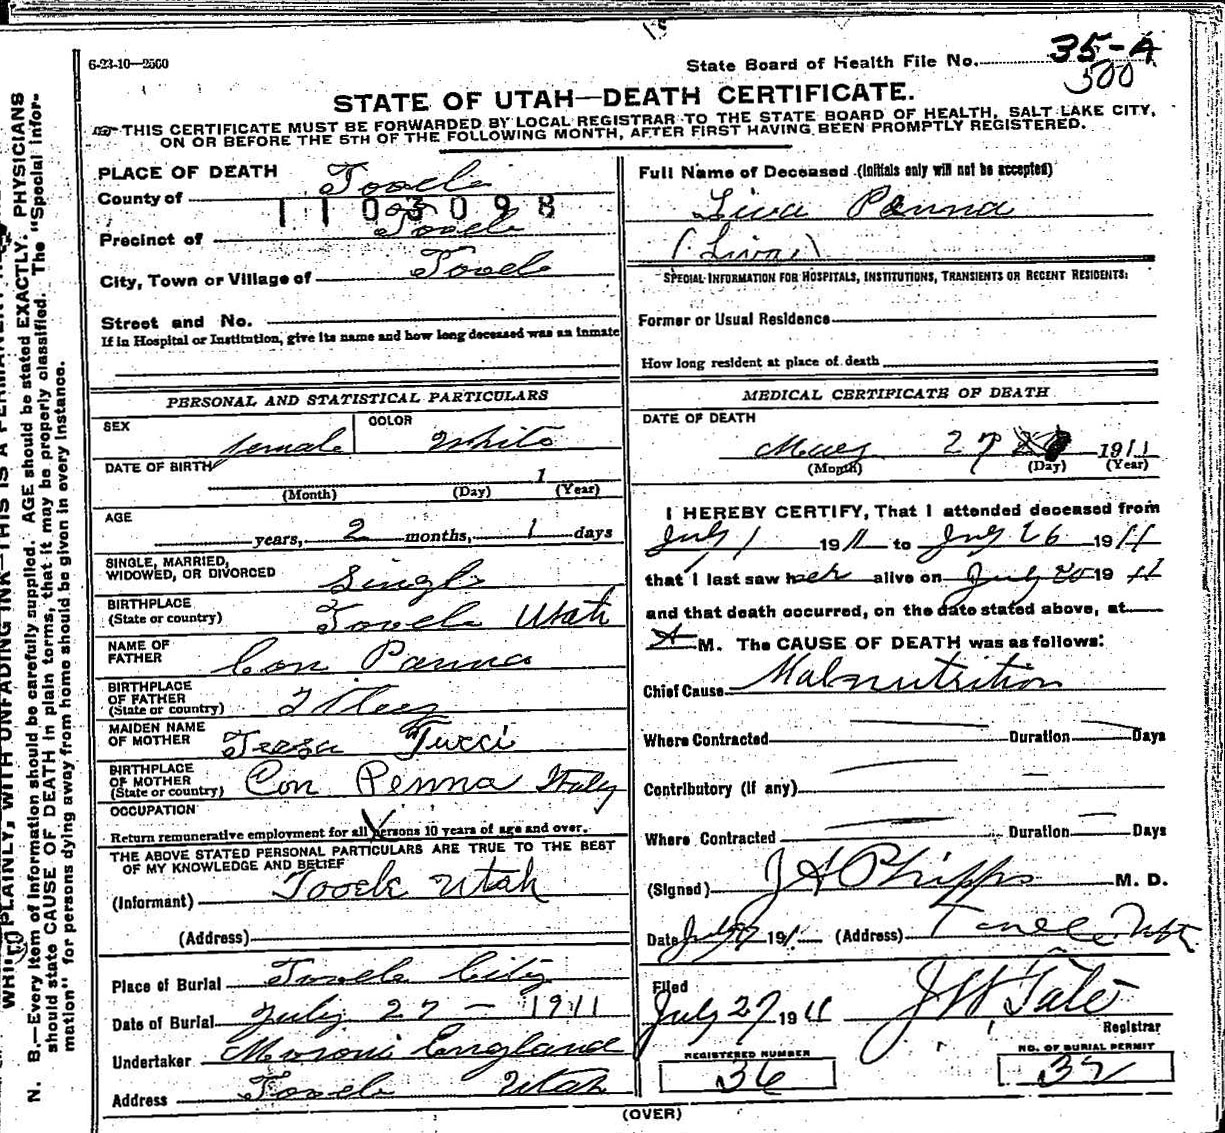 6-23-10—2500
State Board of Health File No. 35-A
500
STATE OF UTAH—DEATH CERTIFICATE.
THIS CERTIFICATE MUST BE FORWARDED BY LOCAL REGISTRAR TO THE STATE BOARD OF HEALTH, SALT LAKE CITY,
ON OR BEFORE THE 5TH OF THE FOLLOWING MONTH, AFTER FIRST HAVING BEEN PROMPTLY REGISTERED.
PLACE OF DEATH
County of Tooele
1103098
Precinct of Tooele
City, Town or Village of Tooele
Street and No.
If in Hospital or Institution, give its name and how long deceased was an inmate
Full Name of Deceased (Initials only will not be accepted)
Liva Penna
(Liva)
SPECIAL INFORMATION FOR HOSPITALS, INSTITUTIONS, TRANSIENTS OR RECENT RESIDENTS:
Former or Usual Residence
How long resident at place of death
PERSONAL AND STATISTICAL PARTICULARS
SEX female COLOR White
DATE OF BIRTH 1
(Month) (Day) (Year)
AGE
years, 2 months, 1 days
SINGLE, MARRIED,
WIDOWED, OR DIVORCED Single
BIRTHPLACE
(State or country) Tooele Utah
NAME OF
FATHER Con Panna
BIRTHPLACE
OF FATHER
(State or country)
MAIDEN NAME
OF MOTHER Teresa Tucci
BIRTHPLACE
OF MOTHER
(State or country) Con Penna Italy
OCCUPATION
Return remunerative employment for all persons 10 years of age and over.
THE ABOVE STATED PERSONAL PARTICULARS ARE TRUE TO THE BEST
OF MY KNOWLEDGE AND BELIEF
(Informant) Tooele Utah
(Address)
Place of Burial Tooele City
Date of Burial July 27 — 1911
Undertaker Moroni England
Address Tooele Utah
MEDICAL CERTIFICATE OF DEATH
DATE OF DEATH
27 1911
(Month) (Day) (Year)
I HEREBY CERTIFY, That I attended deceased from
July 1 1911 to July 26 1911
that I last saw her alive on July 20 1911
and that death occurred, on the date stated above, at
A M. The CAUSE OF DEATH was as follows:
Chief Cause Malnutrition
Where Contracted Duration Days
Contributory (if any)
Where Contracted Duration Days
(Signed) J A Phipps M. D.
Date July 27 191 (Address) Tooele Utah
Filed
July 27 1911 J W Tate
Registrar
REGISTERED NUMBER
36
NO. OF BURIAL PERMIT
32
(OVER)
N. B.—Every item of information should be carefully supplied. AGE should be stated EXACTLY. PHYSICIANS
should state CAUSE OF DEATH in plain terms, that it may be properly classified. The "Special Infor-
mation" for persons dying away from home should be given in every instance.
PLAINLY, WITH UNFADING INK—THIS IS A PERMANENT